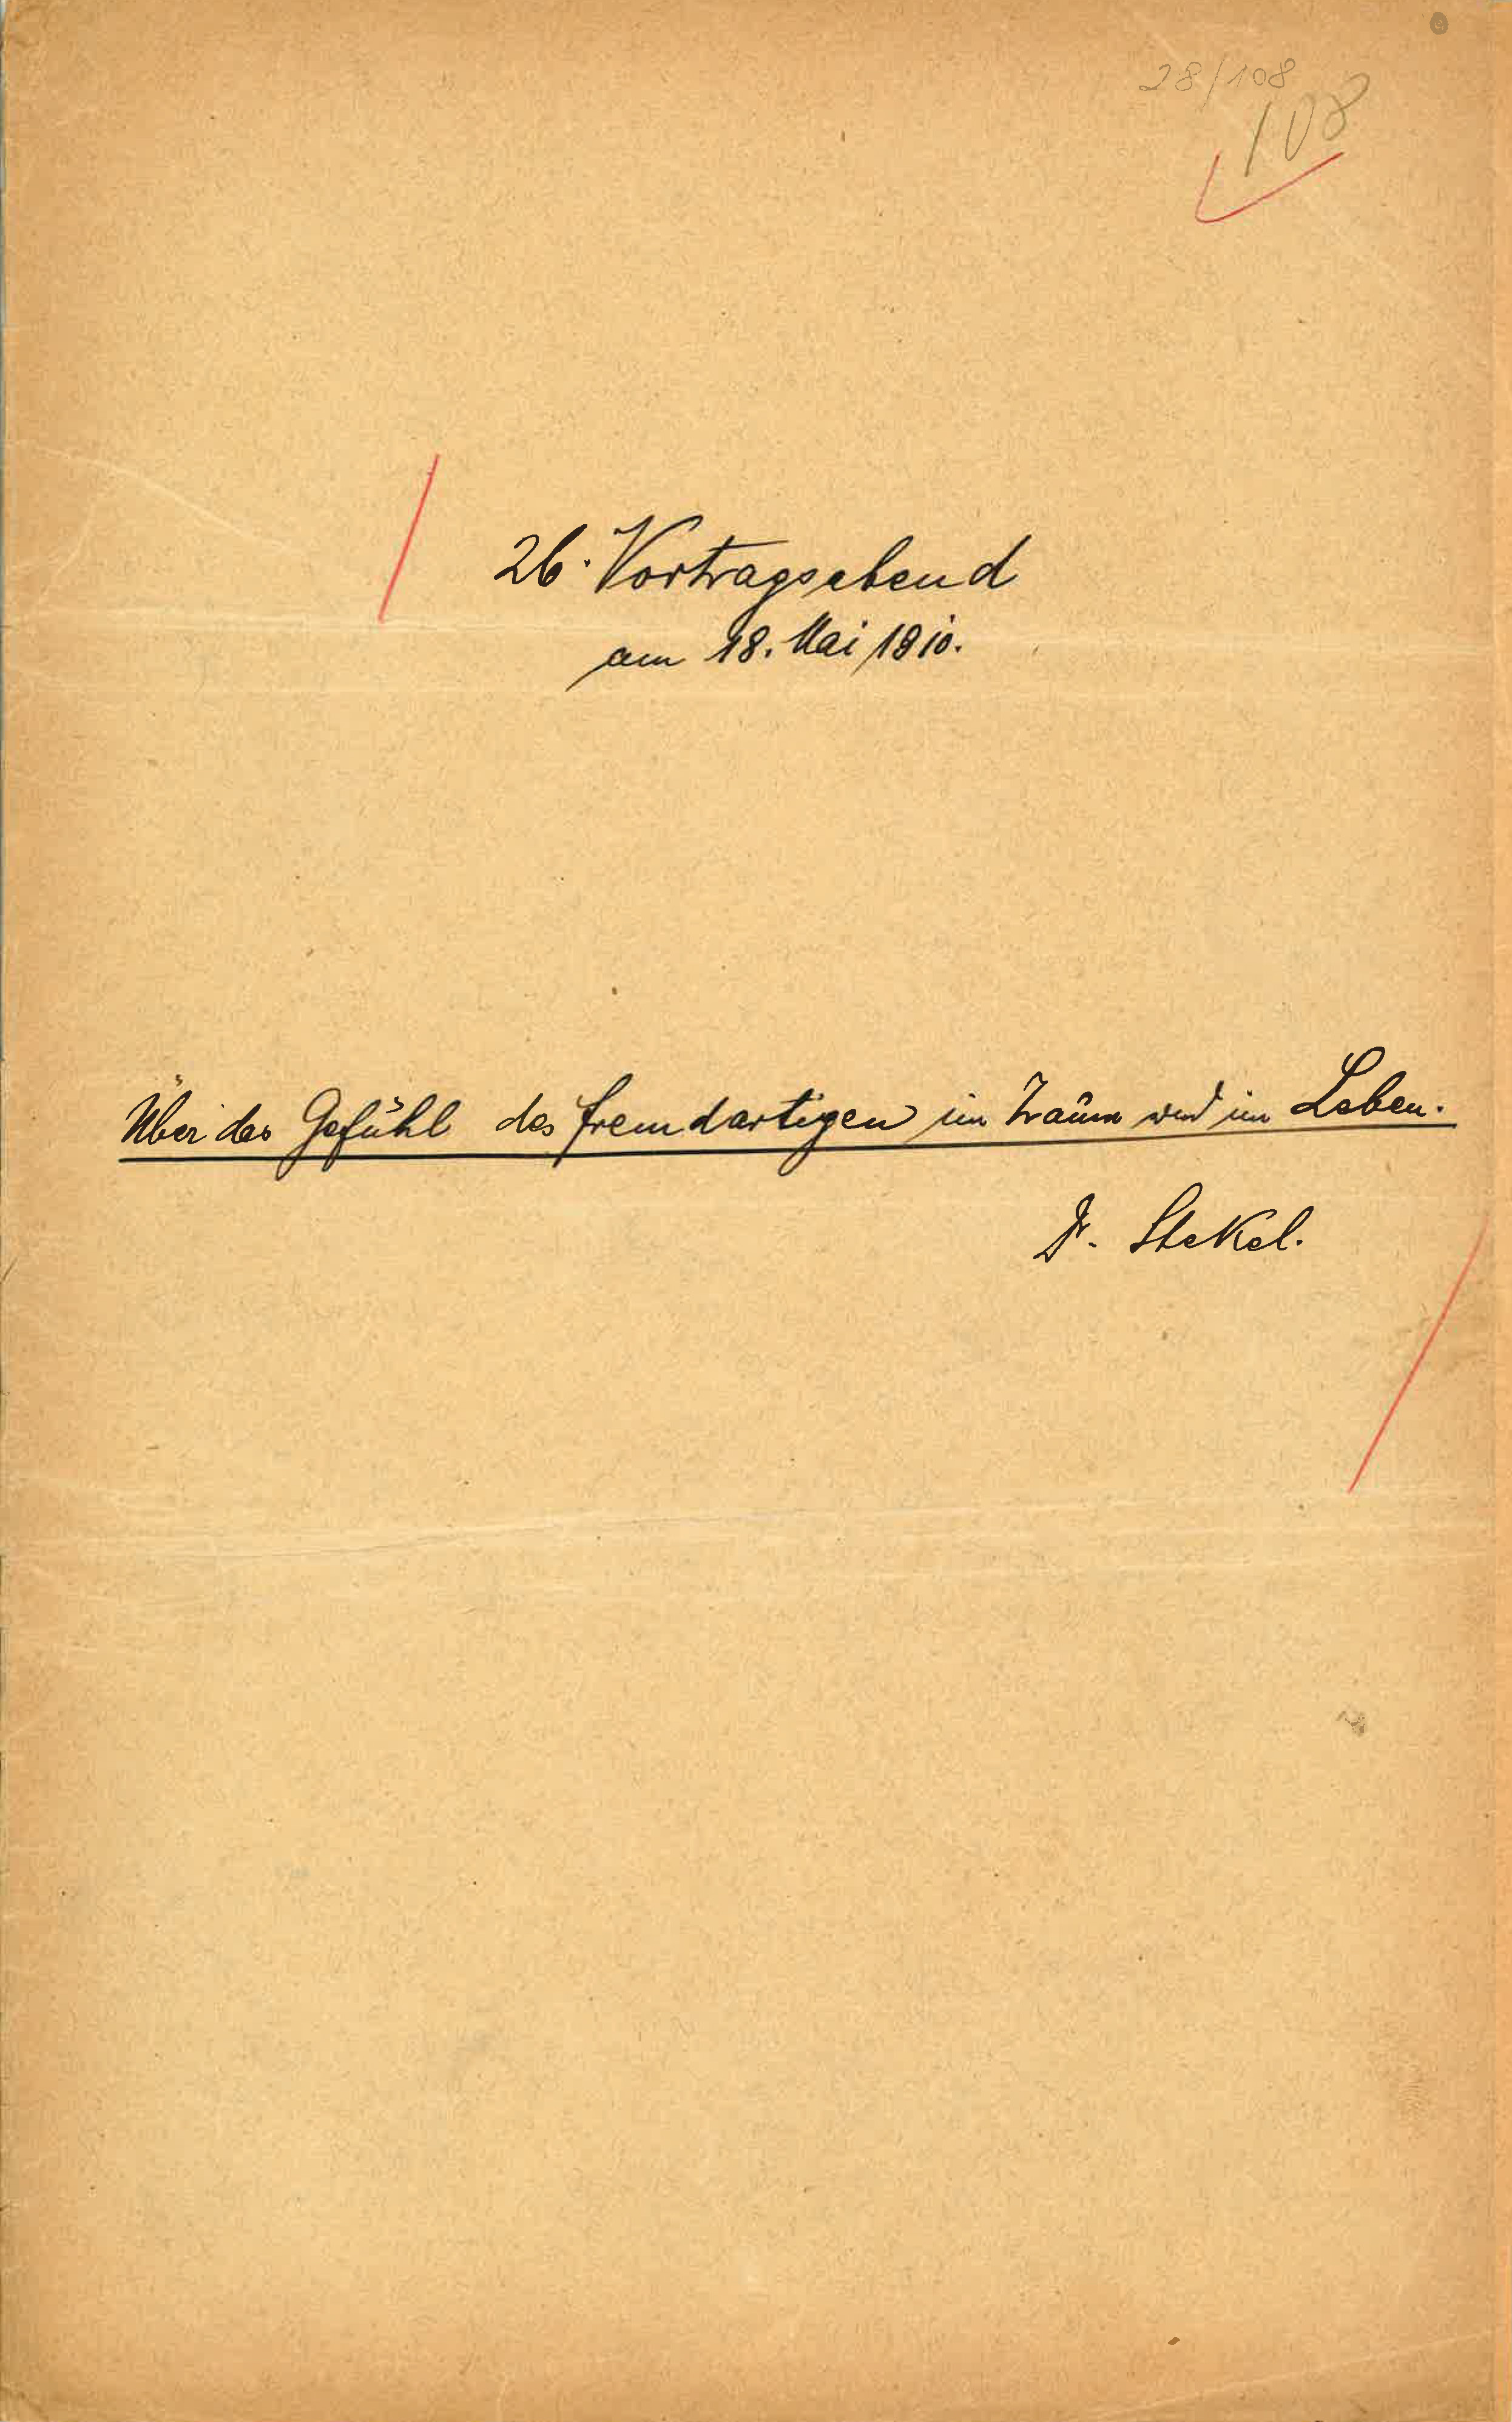 28/108
108
26. Vortragsabend
am 18. Mai 1910.
Über das Gefühl des fremdartigen im Traum und im Leben.
Dr. Stekel.